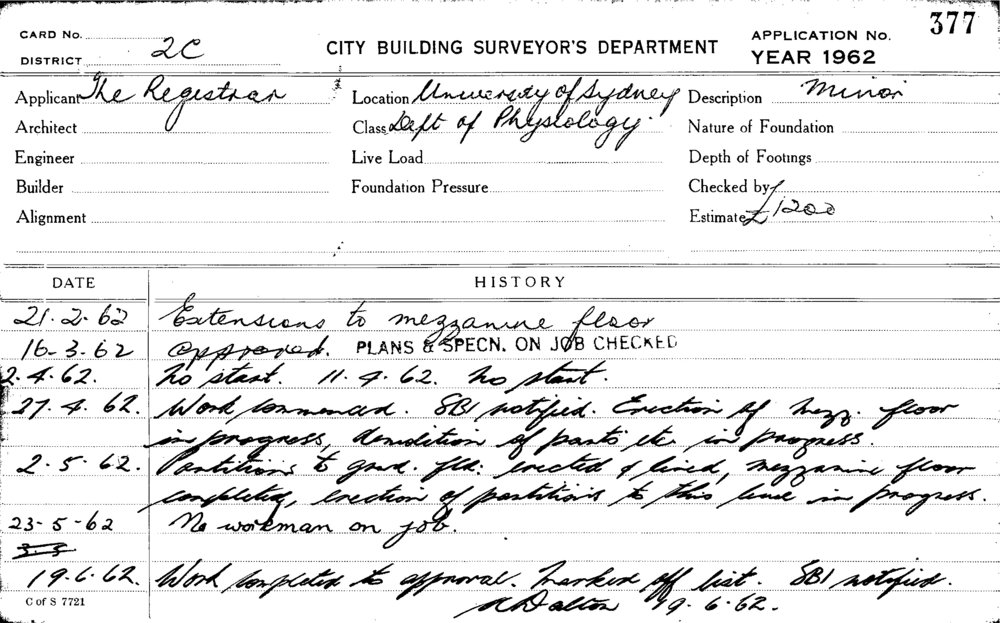 377
CARD No.
DISTRICT 2C
CITY BUILDING SURVEYOR'S DEPARTMENT
APPLICATION No.
YEAR 1962
Applicant The Registrar
Location University of Sydney
Description Minor
Architect
Class Dept of Physiology.
Nature of Foundation
Engineer
Live Load
Depth of Footings
Builder
Foundation Pressure
Checked by
Alignment
Estimate £1200
DATE HISTORY
21-2-62 Extensions to mezzanine floor
16-3-62 approved. PLANS & SPECN. ON JOB CHECKED
2.4.62. No start. 11.4.62. No start.
27.4.62. Work commenced. SBI notified. Erection of mezz. floor
in progress, demolition of parts etc in progress.
2.5.62. Partitions to grnd. flr: erected & lined, mezzanine floor
completed, erection of partitions to this level in progress.
23-5-62 No workman on job.
19.6.62. Work completed to approval. Marked off list. SBI notified.
A Dalton 19.6.62.
C of S 7721